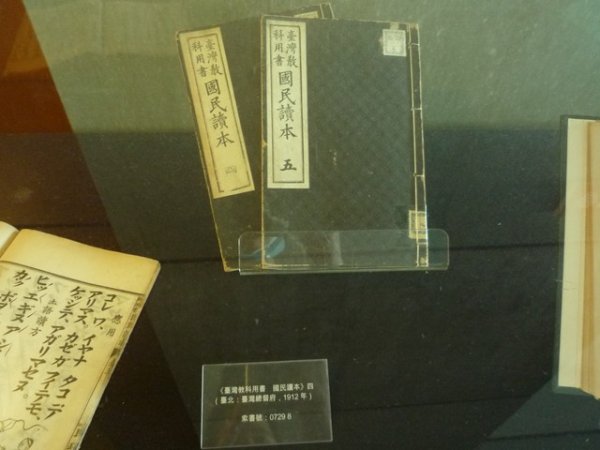 臺灣教
科用書
國民讀本
四
臺灣教
科用書
國民讀本
五
應用
コレ ワ、イヤナ タコ デ
アリマス。カゼガ フイテモ、
ケッシテ、アガリマセヌ。
土語讀方
《臺灣教科用書 國民讀本》四
（臺北：臺灣總督府，1912 年）
索書號：0729 8